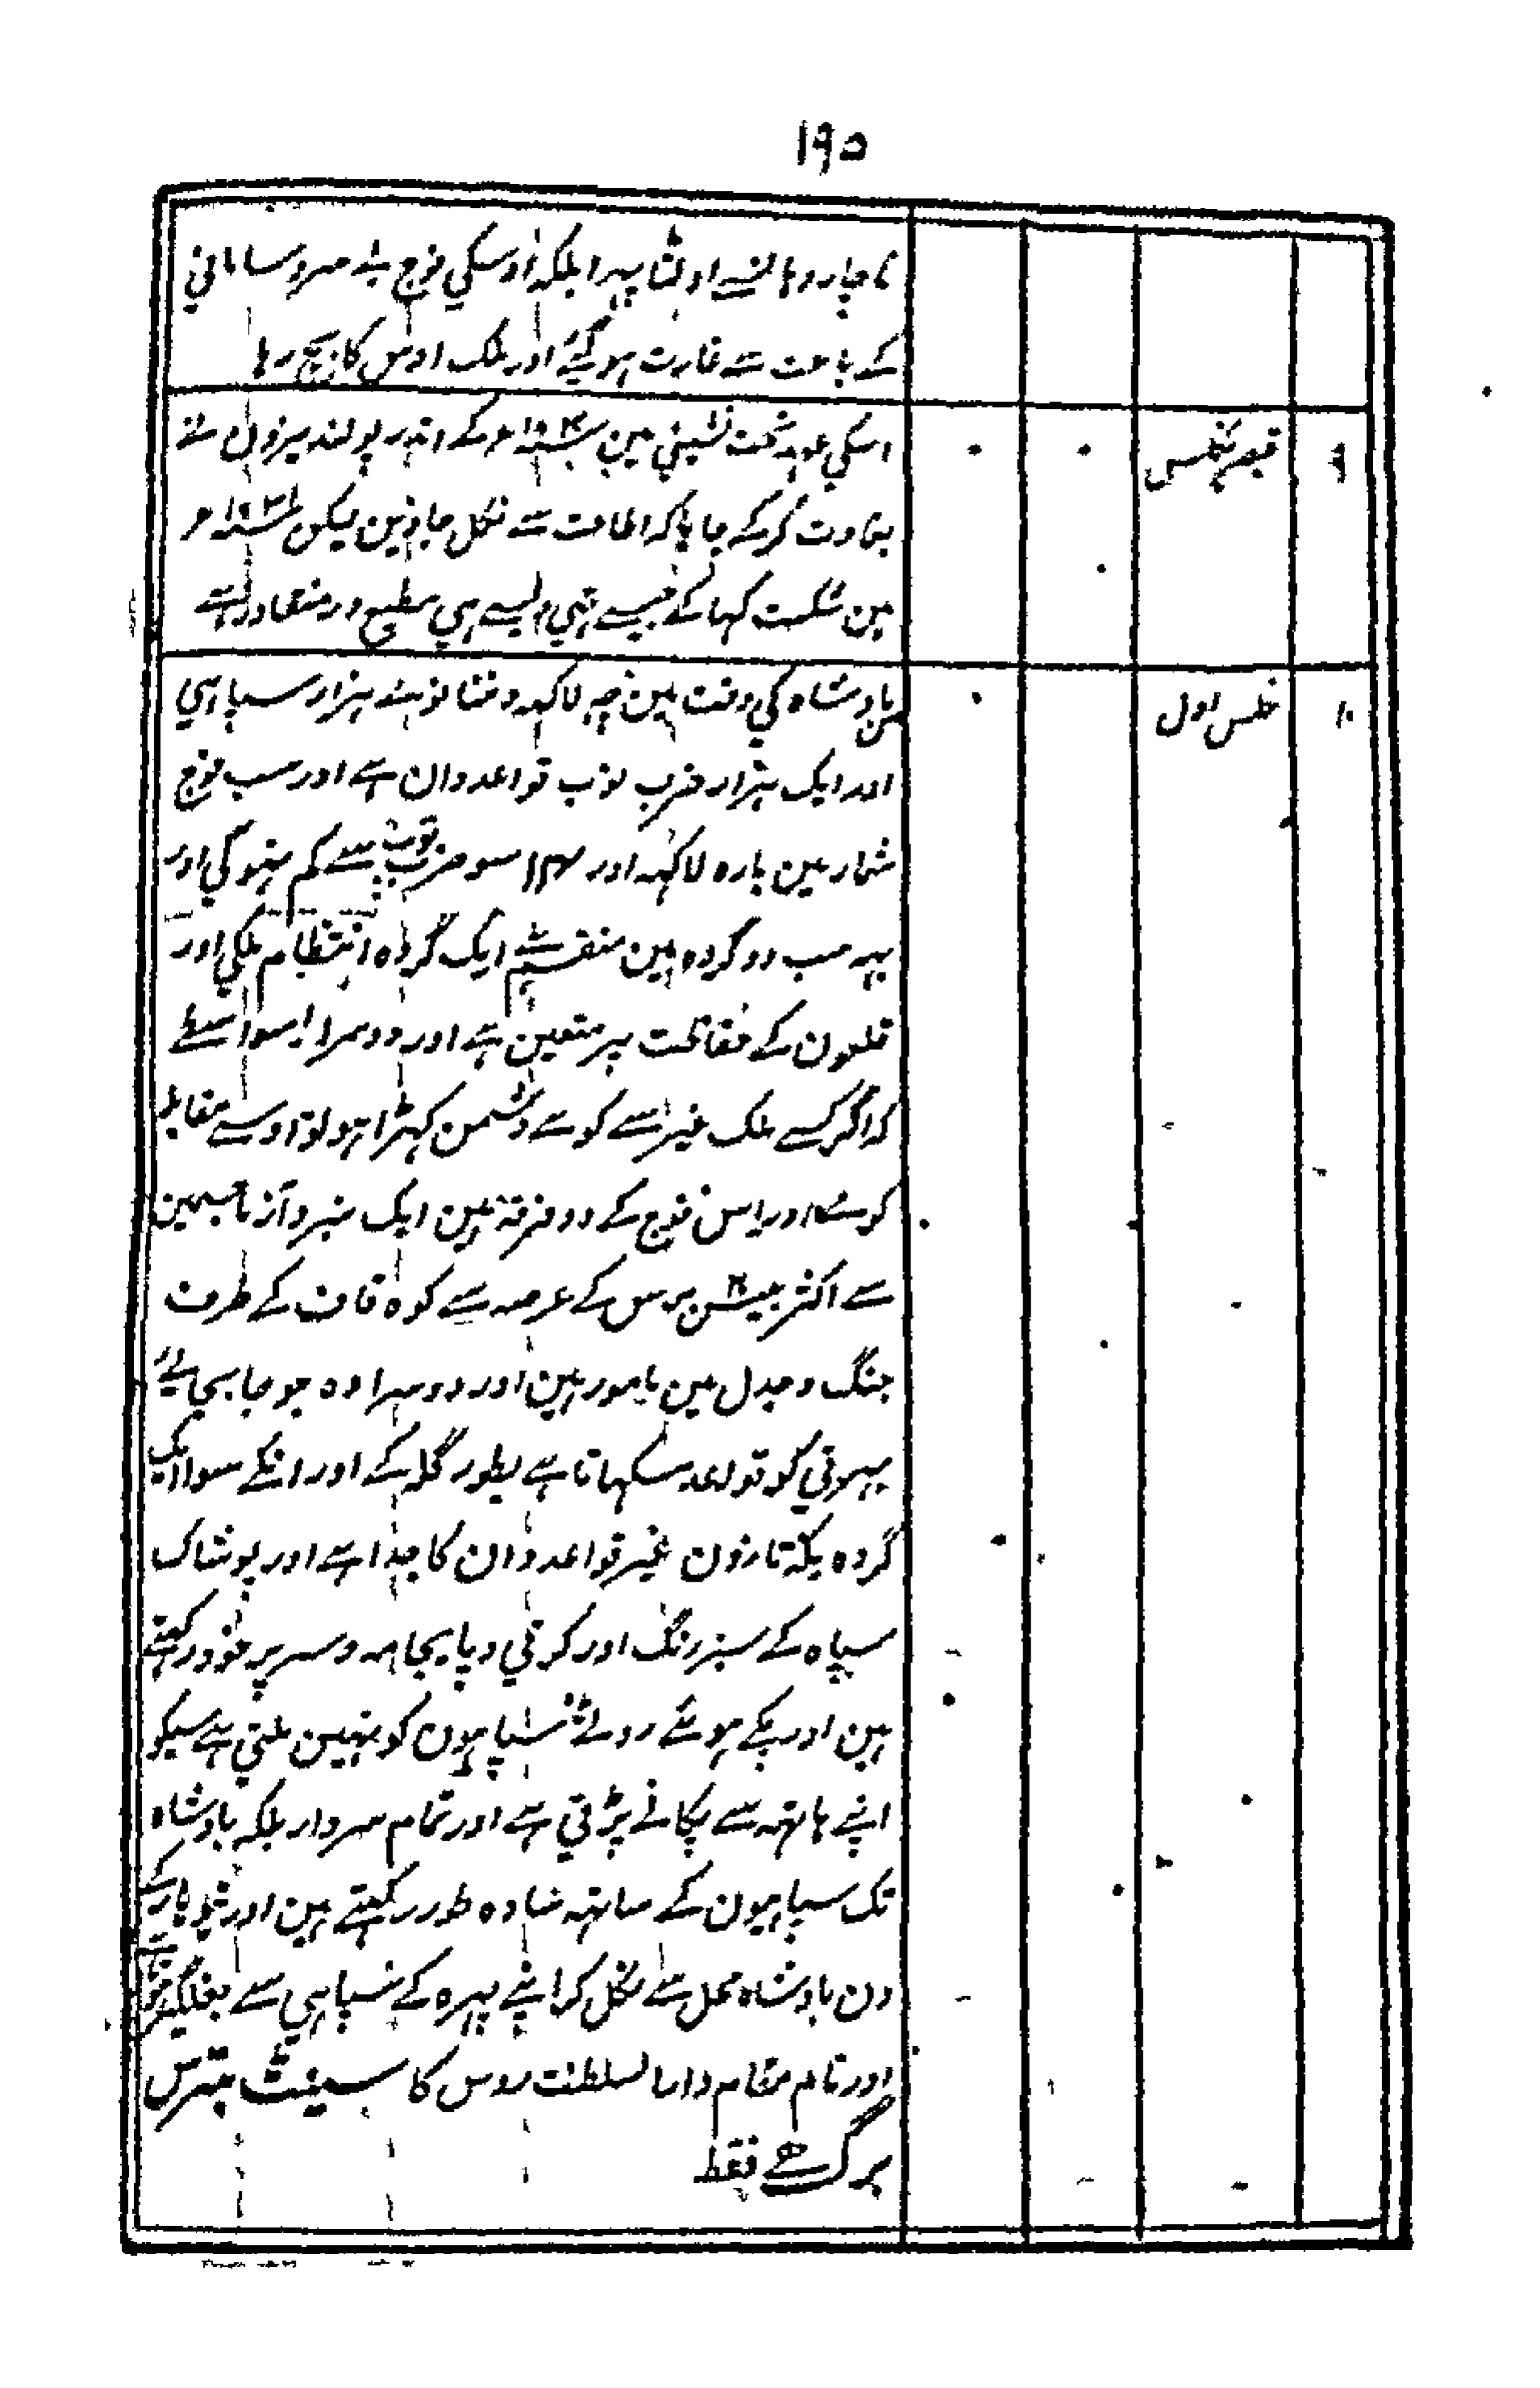 ١٩٥
ناچار وہانسے اولٹا پہرا بلکہ اوسکي فوج بے سروساماني
کے باعث سے غارت ہوگئے اور ملک اوس کا بچ رہا
٩ قیصر نکلس
اسکي عہد تخت نشیني مین سنہ ١٨٣٠ء کے اندر پولند یزون نے
بغاوت کرکے چاہا کہ اطاعت سے نکل جاوین لیکن سنہ ١٨٣١ء
مین شکست کہا کے جیسے تہي ویسے ہي مطیع و منقاد رہے
١٠ نکلس اول
اس بادشاہ کي وقت مین چہہ لاکہہ و ننانوے ہزار سپاہي
اور ایک ہزار ضرب توپ قواعد دان ہے اور سب فوج
شمار مین بارہ لاکہہ اور ١٣ سو ضرب توپ سے کم نہوگي اور
یہہ سب دو گروہ مین منقسم ہے ایک گروہ انتظام ملکي اور
قلعون کے حفاظت پر متعین ہے اور دوسرا اسواسطے
کہ اگر کسے ملک غیر سے کوے دشمن کہڑا ہو تو اوسے مقابلہ
کرے اور اس فوج کے دو فرقہ مین ایک نبرد آزما جسمین
سے اکثر بیس برس کے عرصہ سے کوہ قاف کے طرف
جنگ و جدل مین مامور ہین اور دوسرا وہ جو جابجا لئے
بہرتي کو قواعد سکہاتا ہے بطور گلہ کے اور انکے سوا ایک
گروہ یکہ تازون غیر قواعد دان کا جدا ہے اور پوشاک
سپاہ کے سبز رنگ اور کرتي و پایجامہ و سر پر خود رکہتے
ہین اور پکے ہوئے روٹے سپاہیون کو نہین ملتي ہے سبکو
اپنے ہاتہہ سے پکانے پڑتي ہے اور تمام سردار بلکہ بادشاہ
تک سپاہیون کے ساتہہ سادہ طور رکہتے ہین اور تیوہار کے
دن بادشاہ محل سے نکل کر اپنے پہرہ کے سپاہي سے بغلگیر ہوتا ہے
اور نام مقام دارالسلطنت روس کا سینٹ پترس
برگ ہے فقط